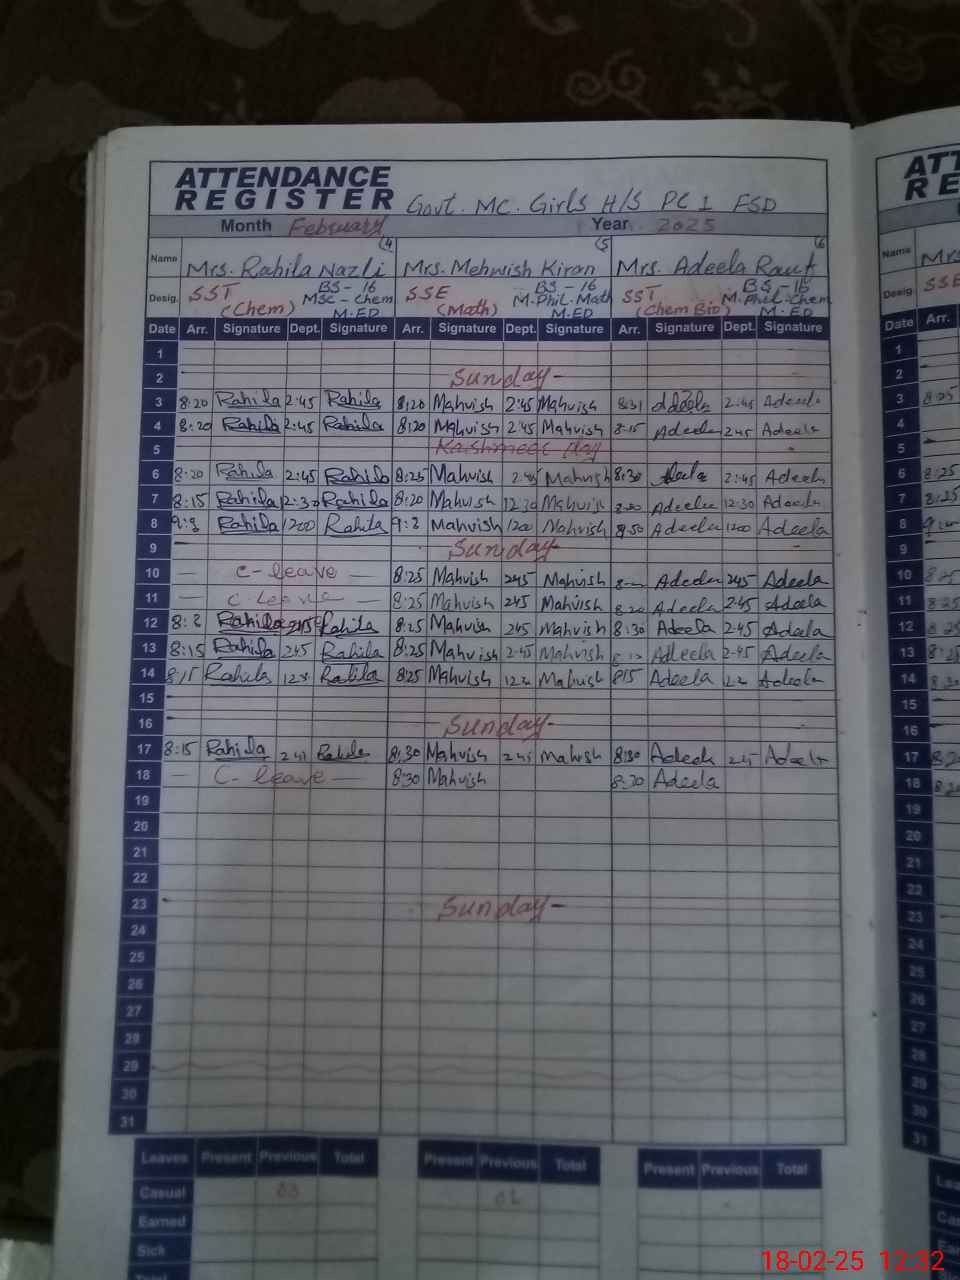 ATTENDANCE
REGISTER Govt. MC. Girls H/S PC 1 FSD
Month February Year 2025
Name Mrs. Rahila Nazli (4 Mrs. Mehwish Kiran (5 Mrs. Adeela Rauf (6
Desig. SST (Chem) BS-16 MSc-Chem M.ED SSE (Math) BS-16 M.Phil-Math M.ED SST (Chem Bio) BS-16 M.Phil-Chem M.ED
Date Arr. Signature Dept. Signature Arr. Signature Dept. Signature Arr. Signature Dept. Signature
1
2 Sunday
3 8:20 Rahila 2:45 Rahila 8:20 Mahvish 2:45 Mahvish 8:31 Adeela 2:45 Adeela
4 8:20 Rahila 2:45 Rahila 8:20 Mahvish 2:45 Mahvish 8:15 Adeela 2:45 Adeela
5 Kashmeer day
6 8:20 Rahila 2:45 Rahila 8:25 Mahvish Mahvish 8:30 Adeela 2:45 Adeela
7 8:15 Rahila 12:30 Rahila 8:20 Mahvish 12:30 Mahvish 8:20 Adeela 12:30 Adeela
8 Rahila 1200 Rahila Mahvish 1200 Mahvish 8:50 Adeela 1200 Adeela
9 Sunday
10 — C-leave — 8:25 Mahvish 245 Mahvish Adeela 245 Adeela
11 — C leave — 8:25 Mahvish 245 Mahvish 8:20 Adeela 2:45 Adeela
12 Rahila Rahila 8:25 Mahvish 245 Mahvish 8:30 Adeela 2:45 Adeela
13 8:15 Rahila 245 Rahila 8:25 Mahvish 2:45 Mahvish Adeela 2:45 Adeela
14 8:15 Rahila Rahila 8:25 Mahvish Mahvish 8:15 Adeela Adeela
15
16 Sunday
17 8:15 Rahila Rahila 8:30 Mahvish 2:45 Mahvish 8:30 Adeela 2:45 Adeela
18 — C-leave — 8:30 Mahvish 8:30 Adeela
19
20
21
22
23 Sunday
24
25
26
27
28
29
30
31
Leaves Present Previous Total Present Previous Total Present Previous Total
Casual 03
Earned
Sick
Total
ATT
RE
Name Mrs
Desig. SSE
Date Arr.
1
2
3 8:25
4
5
6 8:25
7 8:25
8
9
10 8:25
11 8:25
12 8:25
13 8:25
14 8:30
15
16
17
18
19
20
21
22
23
24
25
26
27
28
29
30
31
18-02-25 12:32